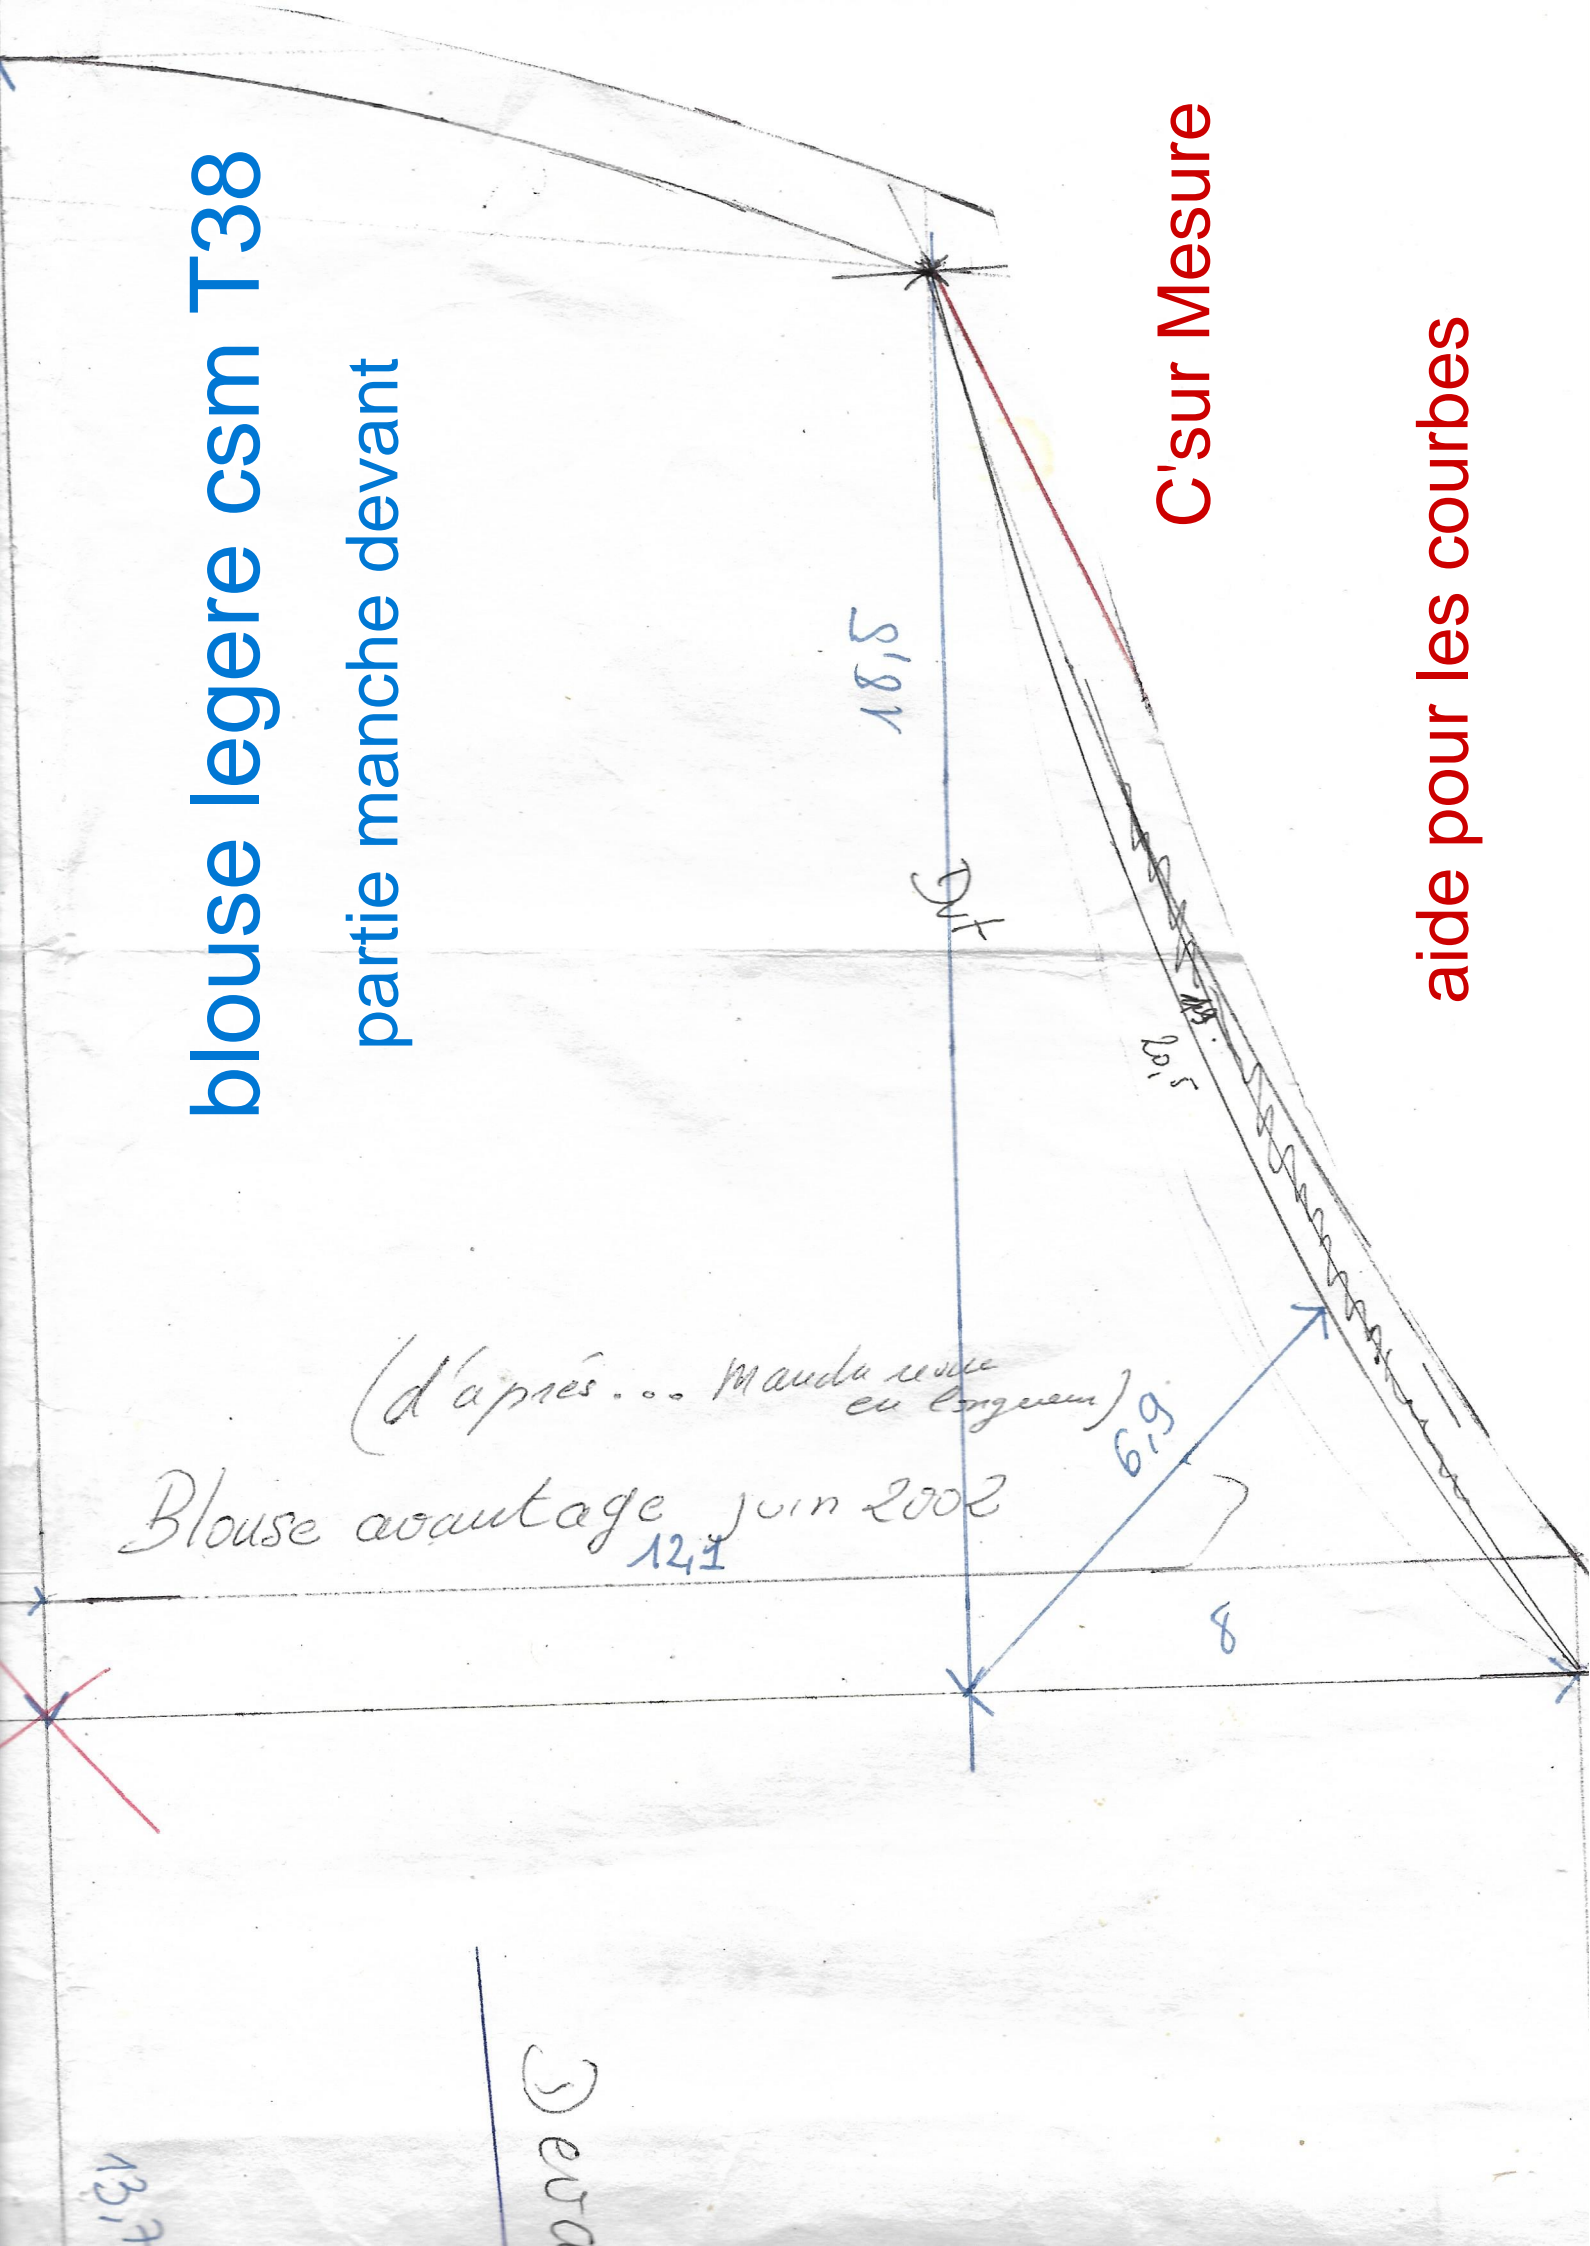 blouse legere csm T38
partie manche devant
C'sur Mesure
aide pour les courbes
18,5
Dvt
19.
20,5
(d'aprés... 
en longueur)
6,9
Blouse avantage juin 2002
12,1
8
Deva
13,7